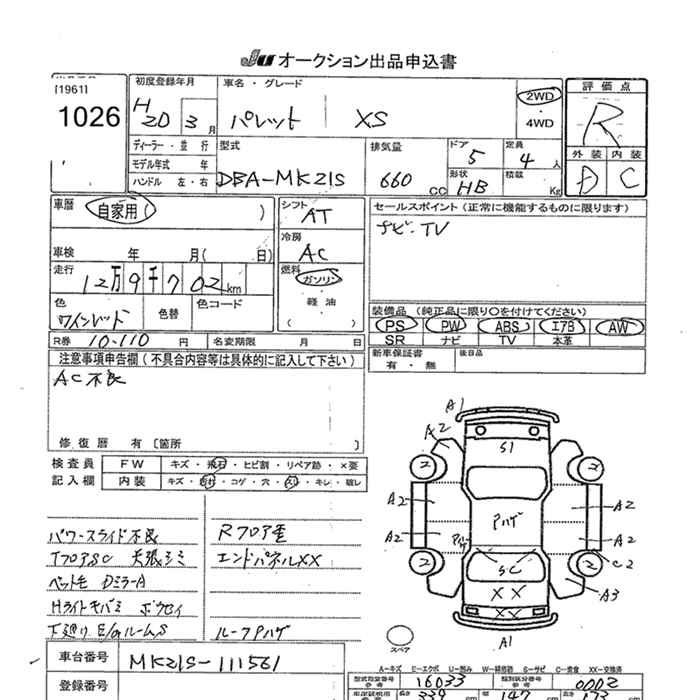 JU オークション出品申込書
[1961]
1026
初度登録年月
H20 3月
車名・グレード
パレット XS
2WD
・
4WD
評価点
R
外装 内装
D C
ディーラー・並行
モデル年式 年
ハンドル 左・右
型式
DBA-MK21S
排気量
660 cc
ドア
5
定員
4人
形状
HB
積載
Kg
車歴
自家用( )
車検 年 月( 日)
走行
12万9千702km
色
ワインレッド
色替
色コード
シフト
AT
冷房
AC
燃料
ガソリン
・
軽油
( )
セールスポイント(正常に機能するものに限ります)
ナビ・TV
装備品(純正品に限り〇を付けてください)
PS PW ABS エアB AW
SR ナビ TV 本革
R券 10,110 円 名変期限 月 日
新車保証書
有・無
後日品
注意事項申告欄(不具合内容等は具体的に記入して下さい)
AC不良
修復歴 有〔箇所 〕
検査員
記入欄
FW キズ・飛石・ヒビ割・リペア跡・×要
内装 キズ・汚れ・コゲ・穴・スレ・キレ・破レ
パワースライド不良
TフロアSC 天張シミ
ペット毛 DミラーA
Hライトキバミ ボウセイ
下廻り E/gルームS
Rフロア歪
エンドパネルXX
ルーフPハゲ
A1
A2
S1
2 2
A2 A2
Pハゲ
A2 A2
Pハゲ
C2
2 2
SC
A3
XX
XX
A1
スペア
車台番号
MK21S-111561
登録番号
A-キズ E-エクボ U-凹み W-補修跡 S-サビ C-腐食 XX-交換済
型式指定番号
16033
類別区分番号
0002
長さ
339
cm
幅
147
cm
高さ
173
cm